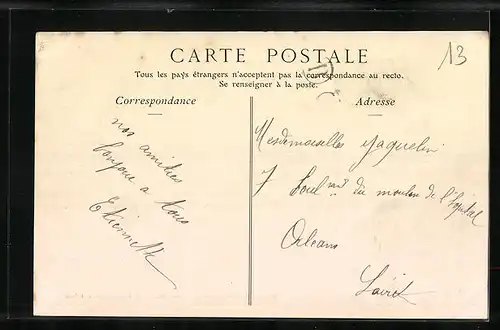 CARTE POSTALE
Tous les pays étrangers n'acceptent pas la correspondance au recto.
Se renseigner à la poste.
13
Correspondance
nos amitiés
bonjour a tous
Adresse
Mesdemoiselles Jaquelin
7 Boul. du moulin de l'hôpital
Orléans
Loiret